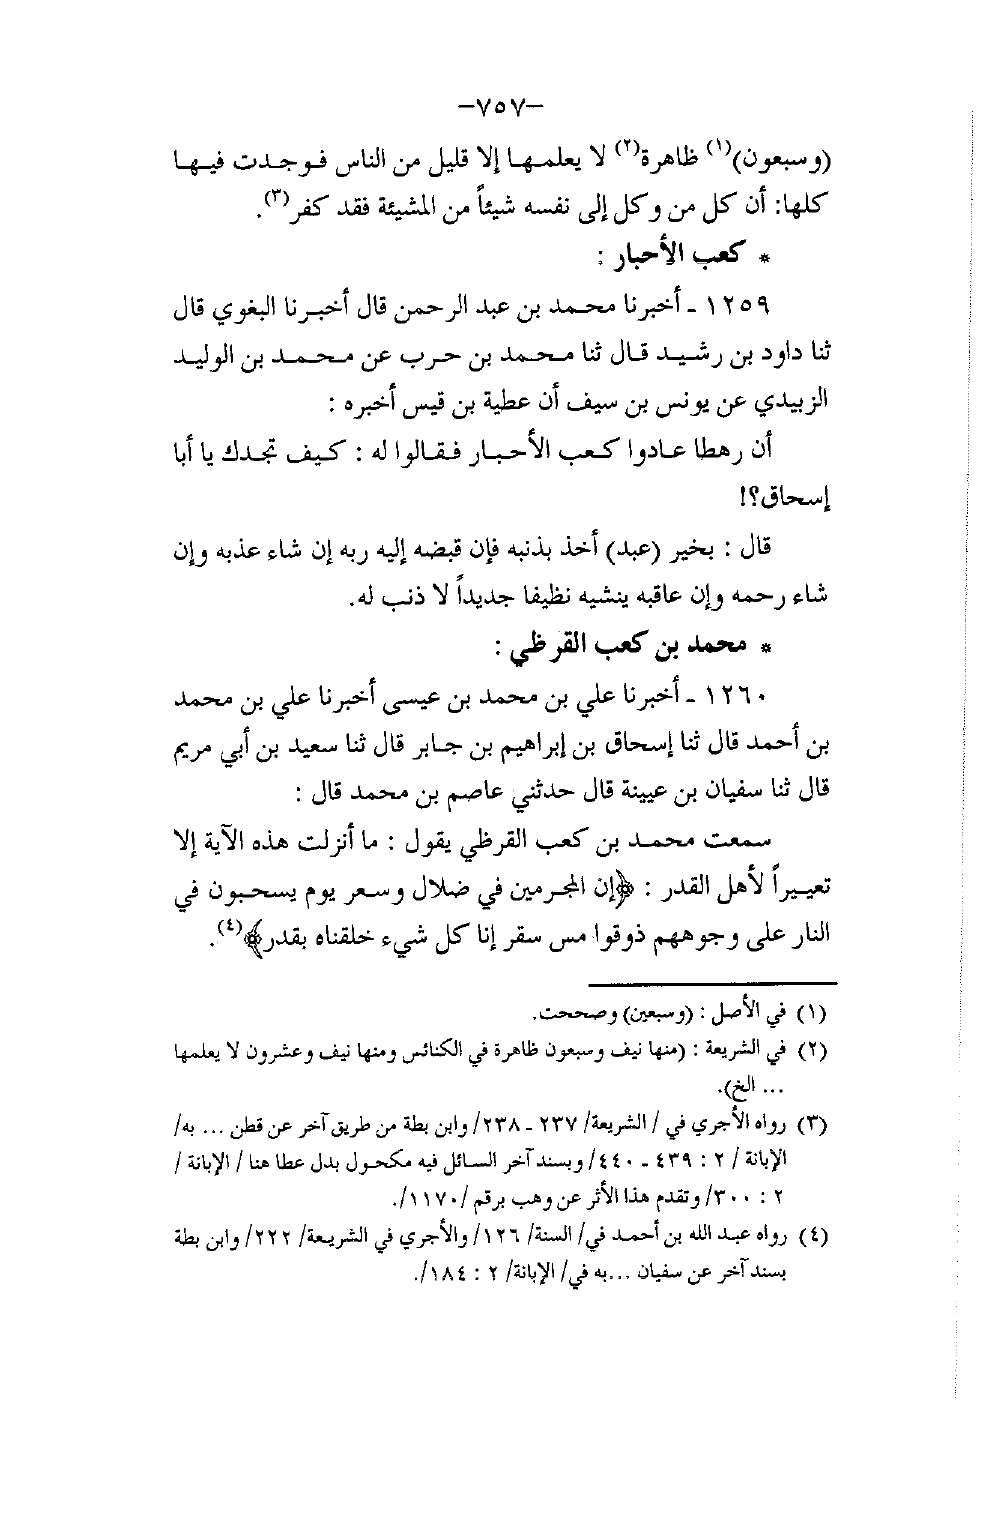 –٧٥٧–
(وسبعون)(١) ظاهرة(٢) لا يعلمها إلا قليل من الناس فوجدت فيها
كلها: أن كل من وكل إلى نفسه شيئاً من المشيئة فقد كفر(٣).
* كعب الأحبار :
١٢٥٩ ـ أخبرنا محمد بن عبد الرحمن قال أخبرنا البغوي قال
ثنا داود بن رشيد قال ثنا محمد بن حرب عن محمد بن الوليد
الزبيدي عن يونس بن سيف أن عطية بن قيس أخبره :
أن رهطا عادوا كعب الأحبار فقالوا له : كيف تجدك يا أبا
إسحاق؟!
قال : بخير (عبد) أخذ بذنبه فإن قبضه إليه ربه إن شاء عذبه وإن
شاء رحمه وإن عاقبه ينشيه نظيفا جديداً لا ذنب له.
* محمد بن كعب القرظي :
١٢٦٠ ـ أخبرنا علي بن محمد بن عيسى أخبرنا علي بن محمد
بن أحمد قال ثنا إسحاق بن إبراهيم بن جابر قال ثنا سعيد بن أبي مريم
قال ثنا سفيان بن عيينة قال حدثني عاصم بن محمد قال :
سمعت محمد بن كعب القرظي يقول : ما أنزلت هذه الآية إلا
تعييراً لأهل القدر : ﴿إن المجرمين في ضلال وسعر يوم يسحبون في
النار على وجوههم ذوقوا مس سقر إنا كل شيء خلقناه بقدر﴾(٤).
(١) في الأصل : (وسبعين) وصححت.
(٢) في الشريعة : (منها نيف وسبعون ظاهرة في الكنائس ومنها نيف وعشرون لا يعلمها
... الخ).
(٣) رواه الأجري في / الشريعة/ ٢٣٧ ـ ٢٣٨/ وابن بطة من طريق آخر عن قطن ... به/
الإبانة / ٢ : ٤٣٩ ـ ٤٤٠/ وبسند آخر السائل فيه مكحول بدل عطا هنا / الإبانة /
٢ : ٣٠٠/ وتقدم هذا الأثر عن وهب برقم /١١٧٠/.
(٤) رواه عبد الله بن أحمد في/ السنة/ ١٢٦/ والأجري في الشريعة/ ٢٢٢/ وابن بطة
بسند آخر عن سفيان ...به في/ الإبانة/ ٢ : ١٨٤/.